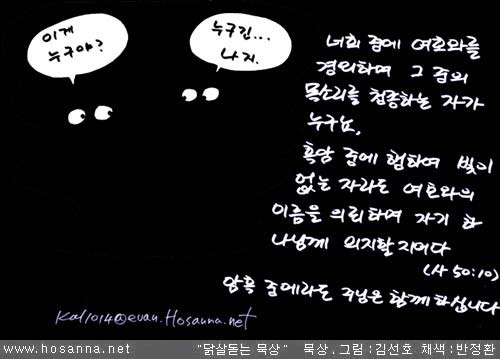 이게
누구야?
누구긴...
나지.
너희 중에 여호와를
경외하며 그 종의
목소리를 청종하는 자가
누구뇨,
흑암 중에 행하여 빛이
없는 자라도 여호와의
이름을 의뢰하며 자기 하
나님께 의지할지어다
(사 50:10)
암흑 중에라도 주님은 함께 하십니다
Kal1014@evan.Hosanna.net
www.hosanna.net "닭살돋는 묵상" 묵상.그림:김선호 채색:반정화